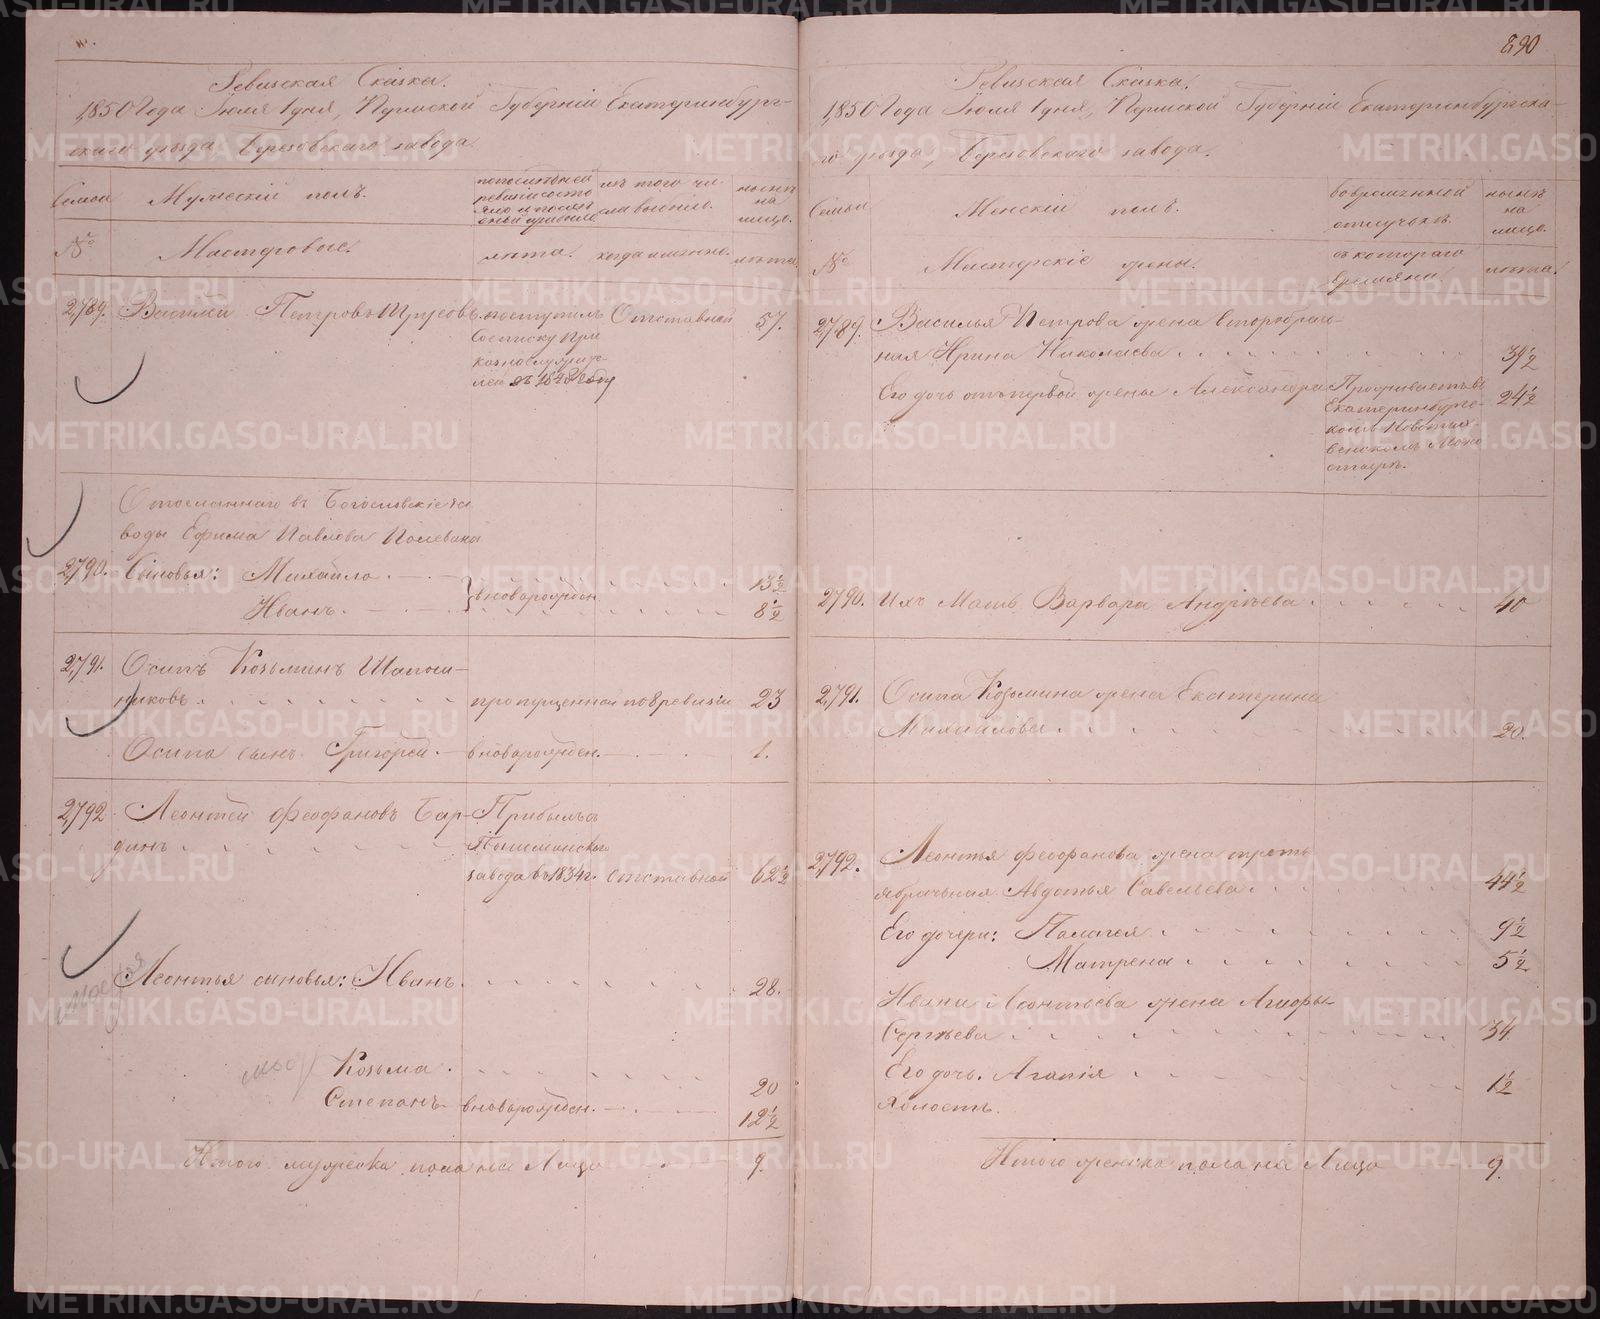 890
Ревизская Сказка.
1850 Года Июля 1 дня, Пермской Губерніи Екатеринбург-
скаго уезда, Березовскаго завода
Семьи
Мужескій полъ.
по последней
ревизіи состо
яло и после
оной прибыло
изъ того чи-
сла выбыло.
ныне
на
лицо.
№
Мастеровые.
лета.
когда именно.
лета.
2,789.
Василій Петровъ Трусовъ.
поступилъ
по списку при
в 1848 году
Отставной
57.
Отосланнаго въ Богословскіе за
воды Ефима Павлова Полевина
2,790.
Сыновья: Михайло
13½
вноворожден
Иванъ.
8½
2,791.
Осипъ Козьминъ Шапош-
никовъ
пропущенной по 8 ревизіи
23
Осипа сынъ Григорей.
вноворожден.
1.
2,792
Леонтей Феофановъ Бар-
динъ
Прибылъ съ
Пышминскаго
завода въ 1834 г.
отставной
62½
Леонтья сыновья: Иванъ.
28.
Козьма.
20
Степанъ
вноворожден.
12½
Итого мужеска пола на Лицо
9.
Ревизская Сказка.
1850 Года Июля 1 дня, Пермской Губерніи Екатеринбургска-
го уезда, Березовскаго завода.
Семьи
Женскій полъ.
во временной
отлучкѣ.
ныне
на
лицо.
№
Мастерскіе жены.
с котораго
времяни
лета.
2,789.
Василья Петрова жена второбрач-
ная Ирина Николаева
39½
Его дочь отъ первой жены Александра
Проживаетъ въ
Екатеринбургс-
комъ Новотих-
венскомъ Мона
стырѣ.
24½
2,790.
Ихъ Мать Варвара Андреева
40
2,791.
Осипа Козьмина жена Екатерина
Михайлова
20.
2,792.
Леонтья Феофанова жена треть
ябрачьная Авдотья Савельева
44½
Его дочери: Палагея
9½
Матрена
5½
Ивана Леонтьева жена
Сергеева
34.
Его дочь. Агапія
1½
Итого женска пола на Лицо
9.
METRIKI.GASO-URAL.RU